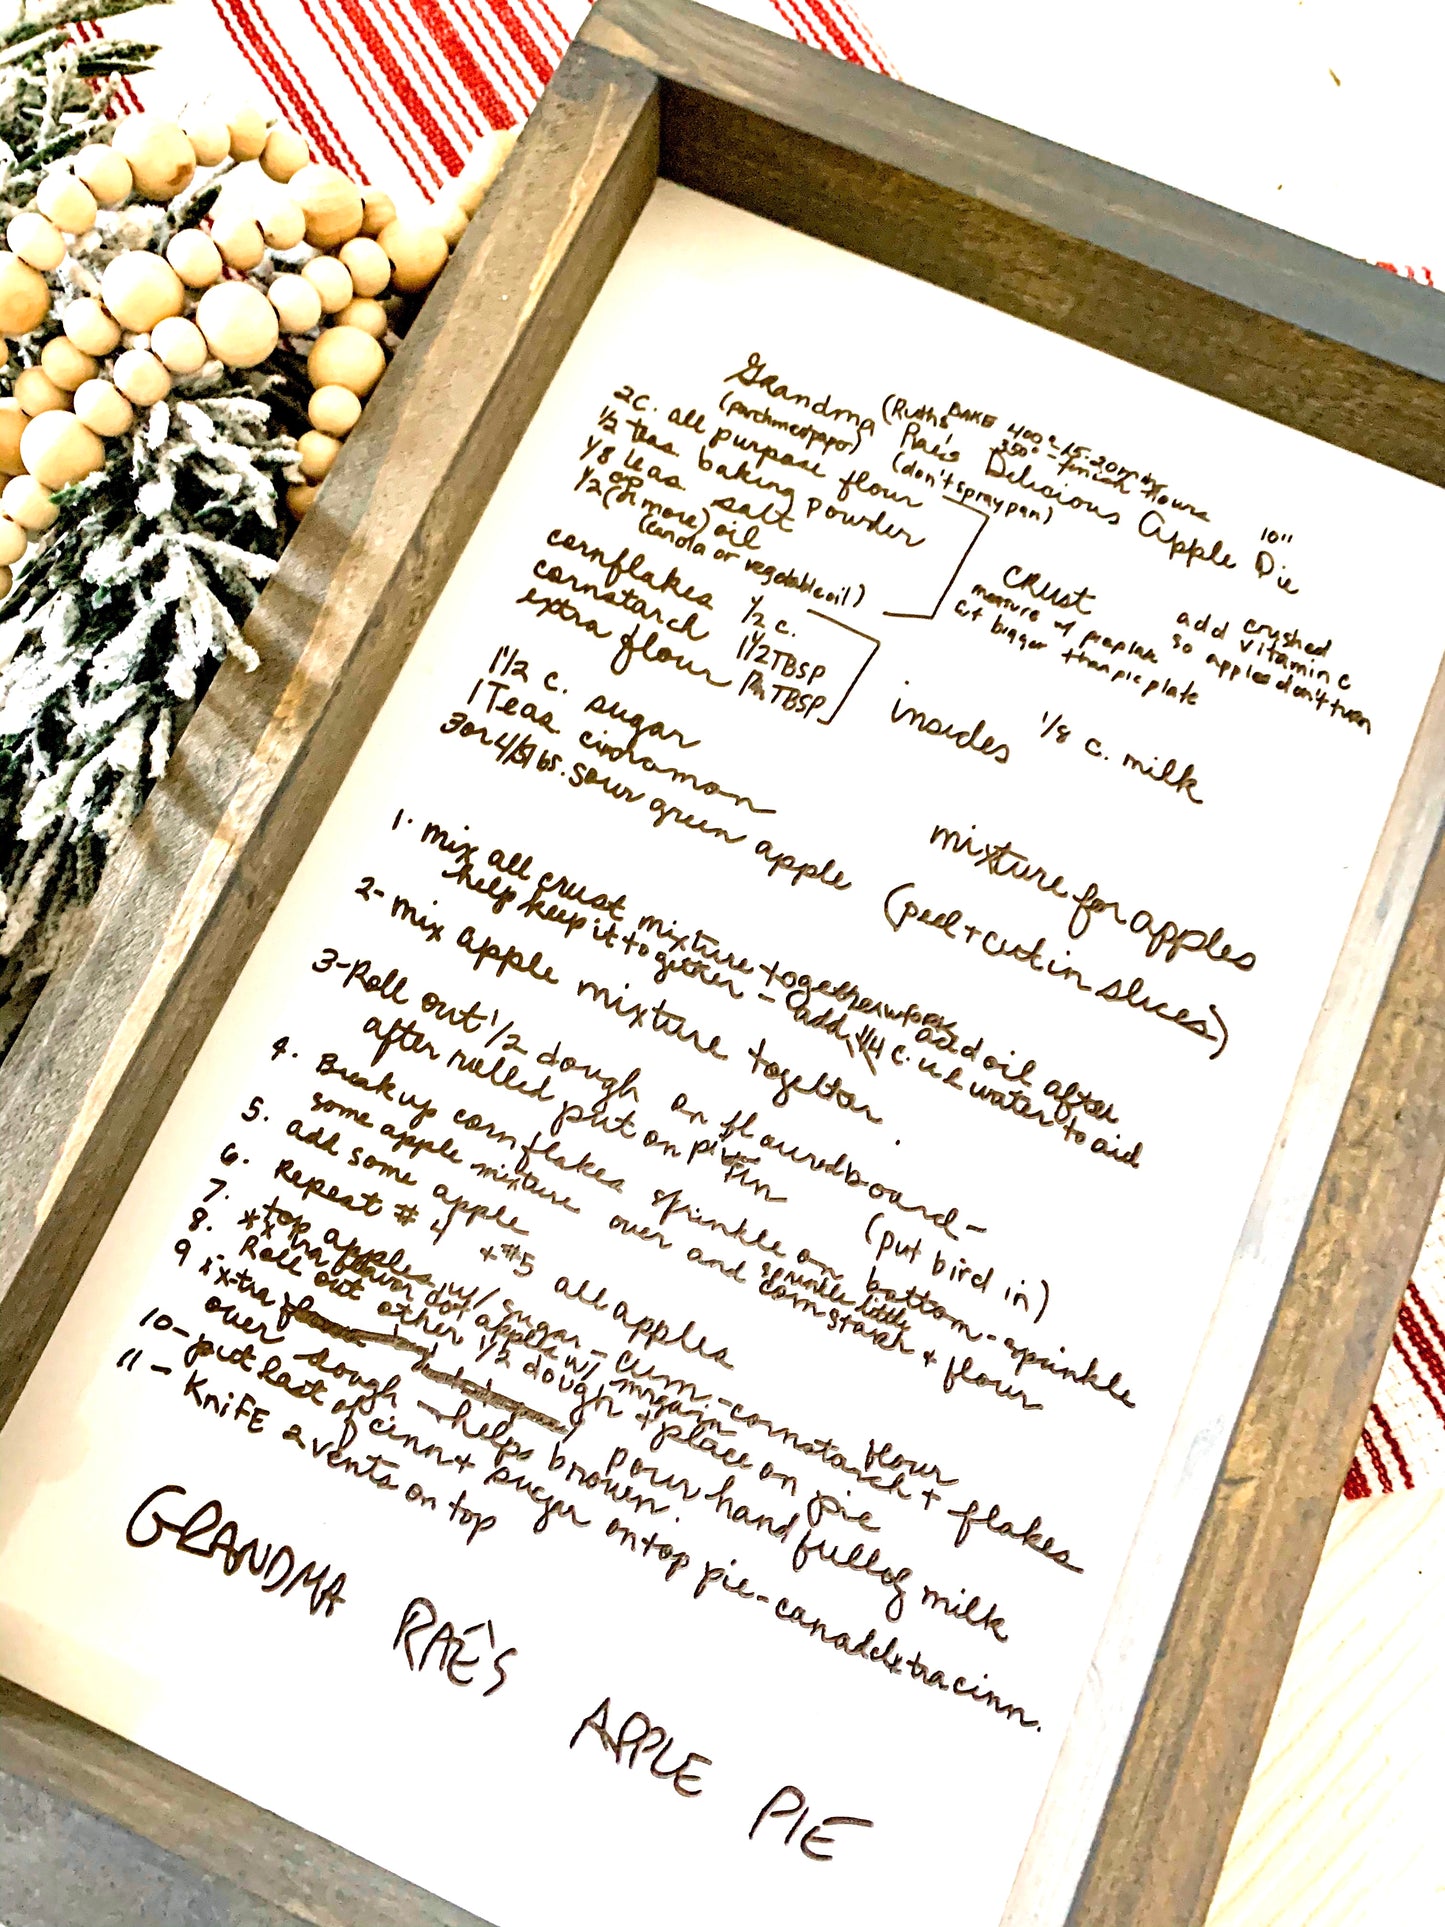 BAKE 400° - 15-20 min
350° - finish Hours
Grandma (Ruth's) Rae's Delicious Apple Pie 10"
(parchment paper) (don't spray pan)
2 c. all purpose flour
1/2 teas. baking powder
1/8 teas. salt
1/2 cup (or more) oil
(canola or vegetable oil)
CRUST
measure w/ pie plate
cut bigger than pie plate
add crushed
vitamin C
so apples don't turn
cornflakes 1/2 c.
cornstarch 1 1/2 TBSP
extra flour TBSP
insides
1/8 c. milk
1 1/2 c. sugar
1 Teas. cinnamon
3 or 4/5 lbs. sour green apple (peel + cut in slices)
mixture for apples
1. mix all crust mixture together add oil after
help keep it together - add 1/4 c. water to aid
2- mix apple mixture together.
3- Roll out 1/2 dough on floured board -
after rolled put on pie tin (put bird in)
4. Break up cornflakes sprinkle on bottom - sprinkle
some apple mixture over and sprinkle little corn starch + flour
5. add some apple
6. Repeat # 4 + #5 all apples
7. top apples w/ sugar - cinn. - cornstarch + flakes
flour
** xtra flavor dot apples w/ margarin
8. - Roll out other 1/2 dough + place on pie
9 ** x-tra pour hand full of milk
over dough - helps brown.
10- put last of cinn + sugar on top pie - can add xtra cinn.
11 - KNiFE 2 vents on top
GRANDMA RAE'S APPLE PIE